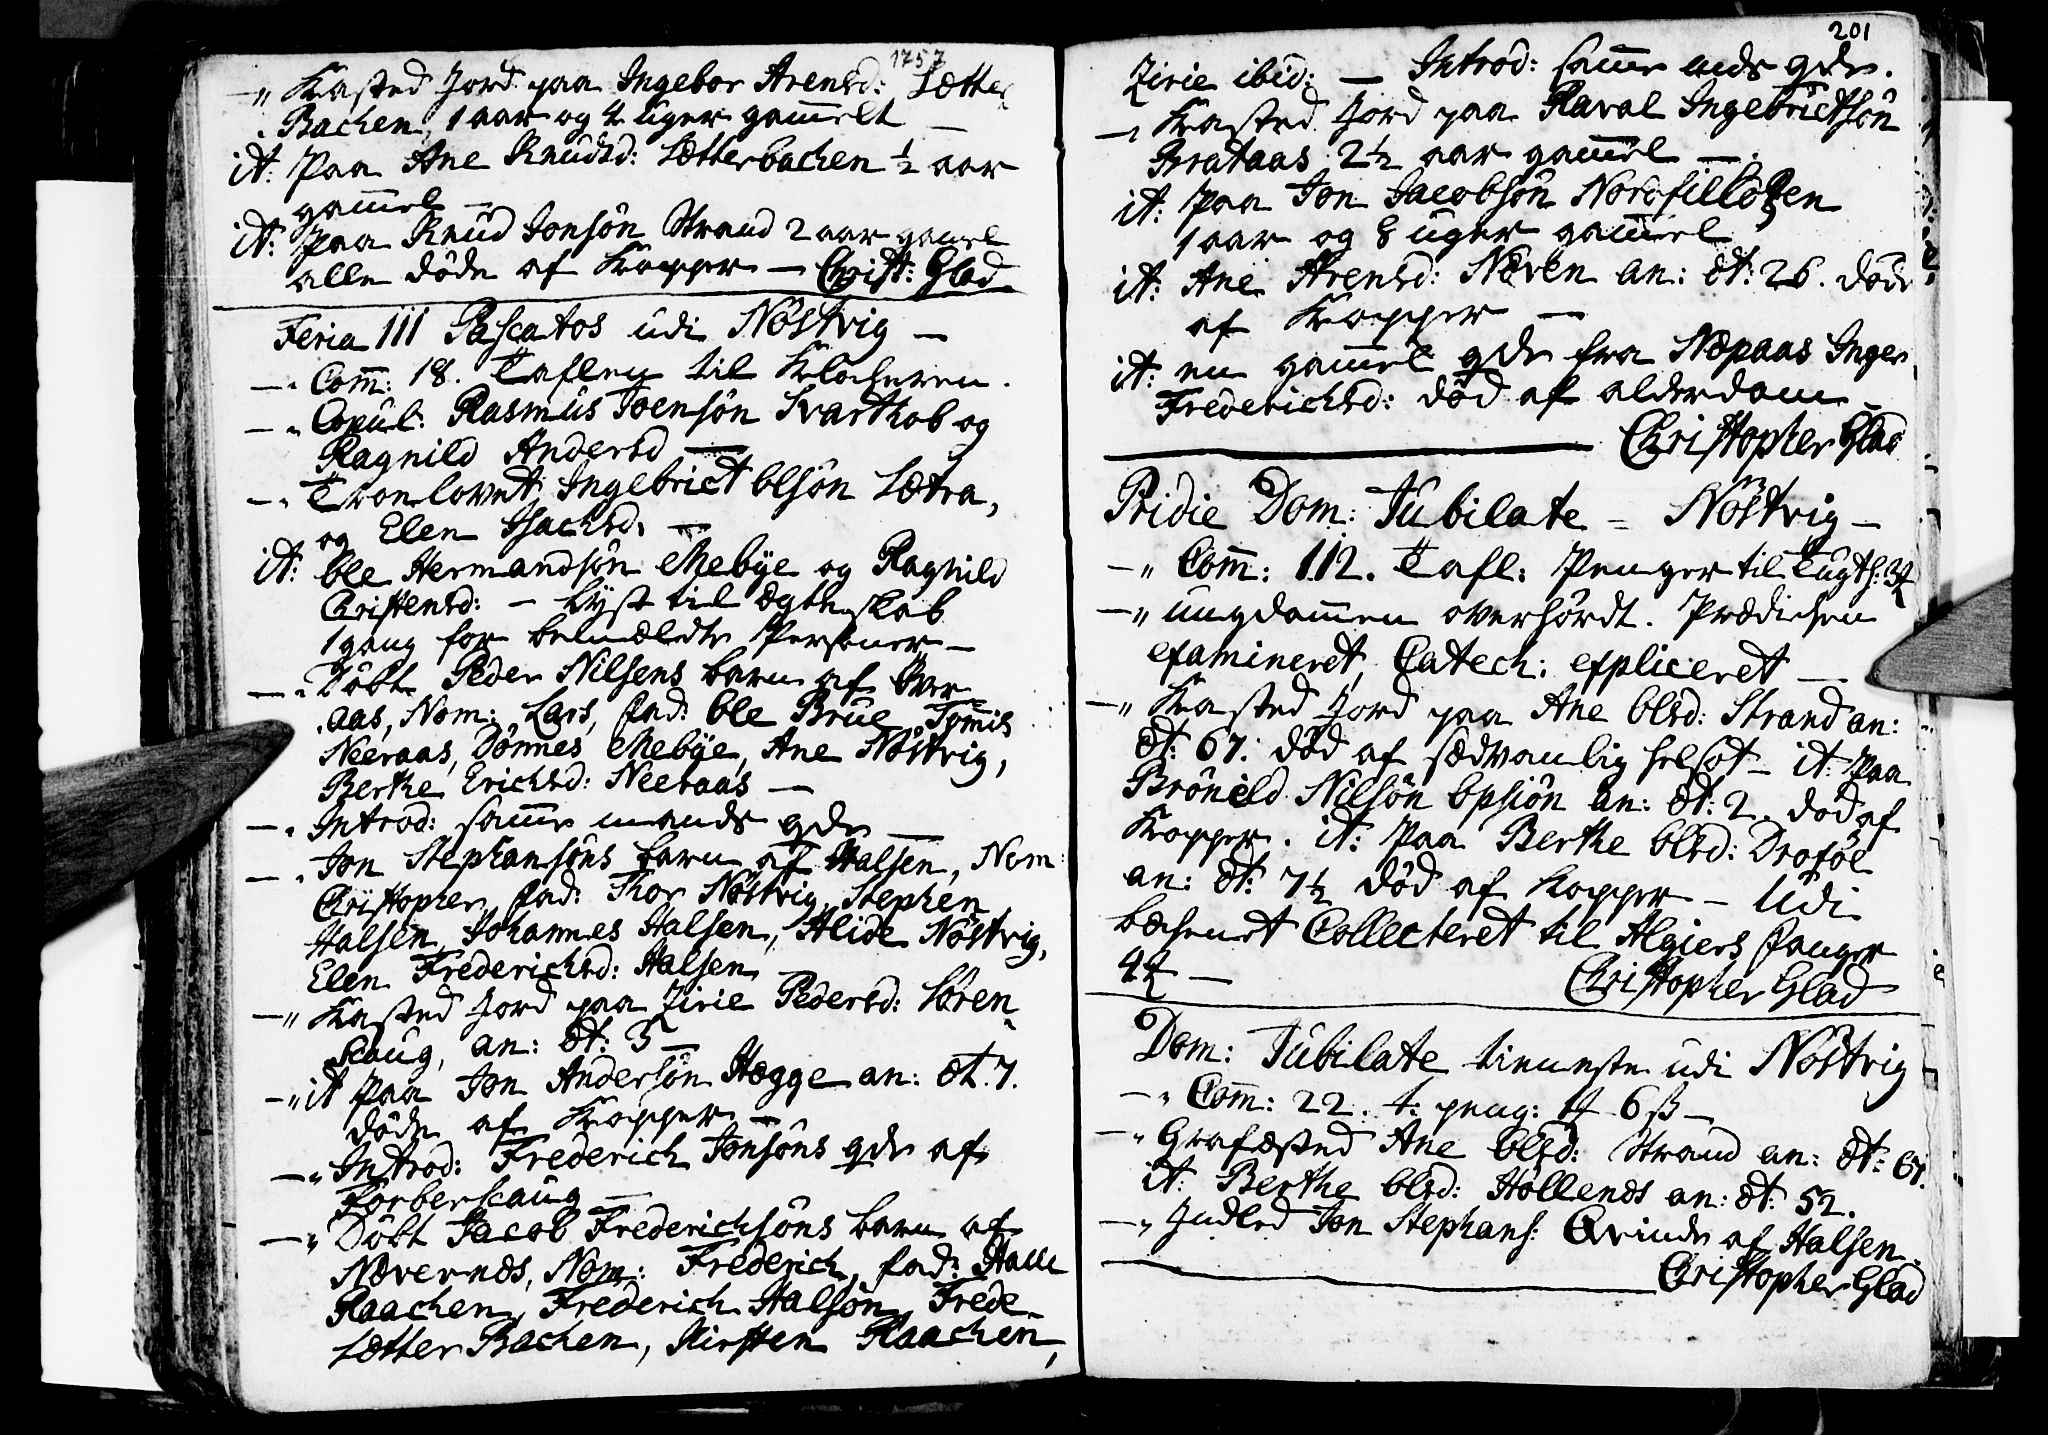 1757
-" Kasted Jord paa Ingebor Arensd: Lætter
Bachen, 1 aar og 4 uger gammelt -
it: Paa Ane Knudsd: Lætterbachen ½ aar
gammel -
it: Paa Knud Jonsön Strand 2 aar gamel
alle döde af Kopper - Christ: Glad
Feria III Pascatos udi Nöstvig -
-" Comm: 18. Taflen til Klocheren.
-" Copul: Rasmus Joensön Svarthob og
Ragnild Andersd -
-" Tronlovet: Ingebrict Olsön Lætra,
og Elen Isachsd: -
it: Ole Hermandsön Mebÿe og Ragnild
Christensd: - Lÿst til Ægteskab
1 gang for bemældte Personer -
-" Döbt Peder Nilsens barn af Över
aas, Nom: Lars, fad: Ole Brue,
Neeraas, Dönnes Mebÿe, Ane Nöstvig,
Berthe Erichsd: Neeraas -
-" Introd: samme mands qde -
-" Jon Stephansöns barn af Halsen, Nom:
Christopher, fad: Thor Nöstvig, Stephen
Halsen, Johannes Halsen, Alide Nöstvig,
Elen Frederichsd: Halsen
-" Kasted Jord paa Zirie Pedersd: Sören
skaug, an: æt: 5 -
-" it Paa Jon Andersön Hægge an: æt. 7.
döde af Kopper -
-" Introd: Frederich Jonsöns qde af
Torberskaug -
-" Döbt Jacob Frederichsöns barn af
Næverness, Nom: Frederich, fad: Halle
Raachen, Frederich Halsön, Frede
Lætter Bachen, Kirsten Raachen,
201
Zirie ibid: - Introd: samme mds qde.
-" Kasted Jord paa Raval Ingebrictsön
Brataas 2½ aar gammel -
it: Paa Jon Jacobsön Nordfilloren
1 aar og 8 uger gammel
it: Ane Arensd: Næven an: æt: 26. döde
af Kopper -
it: en gammel qde fra Næpaas Inger
Frederichsd: död af alderdom -
Christopher Glad
Pridie Dom: Jubilate = Nöstvig -
-" Comm: 112. Tafl: Penger til Tugth:
-" ungdommen overhördt. Prædichen
examineret, Catech: expliceret -
-" Kasted Jord paa Ane Olsd: Strand an:
æt: 67. död af sædvanlig helsot - it: Paa
Brönild Nilsön Opsiön an: æt: 2. död af
Kopper. it: Paa Berthe Olsd: Droföe
an: æt: 7½ död af Kopper - Udi
bechenet Collecteret til Algiers fanger
4 -
Christopher Glad
Dom: Jubilate tieneste udi Nöstvig
-" Comm: 22. t: peng: 6 ß -
-" Grafæsted Ane Olsd: Strand an: æt: 67.
it: Berthe Olsd: Hollenæs an: æt: 52.
-" Indled Jon Stephans: Qvinde af Halsen.
Christopher Glad